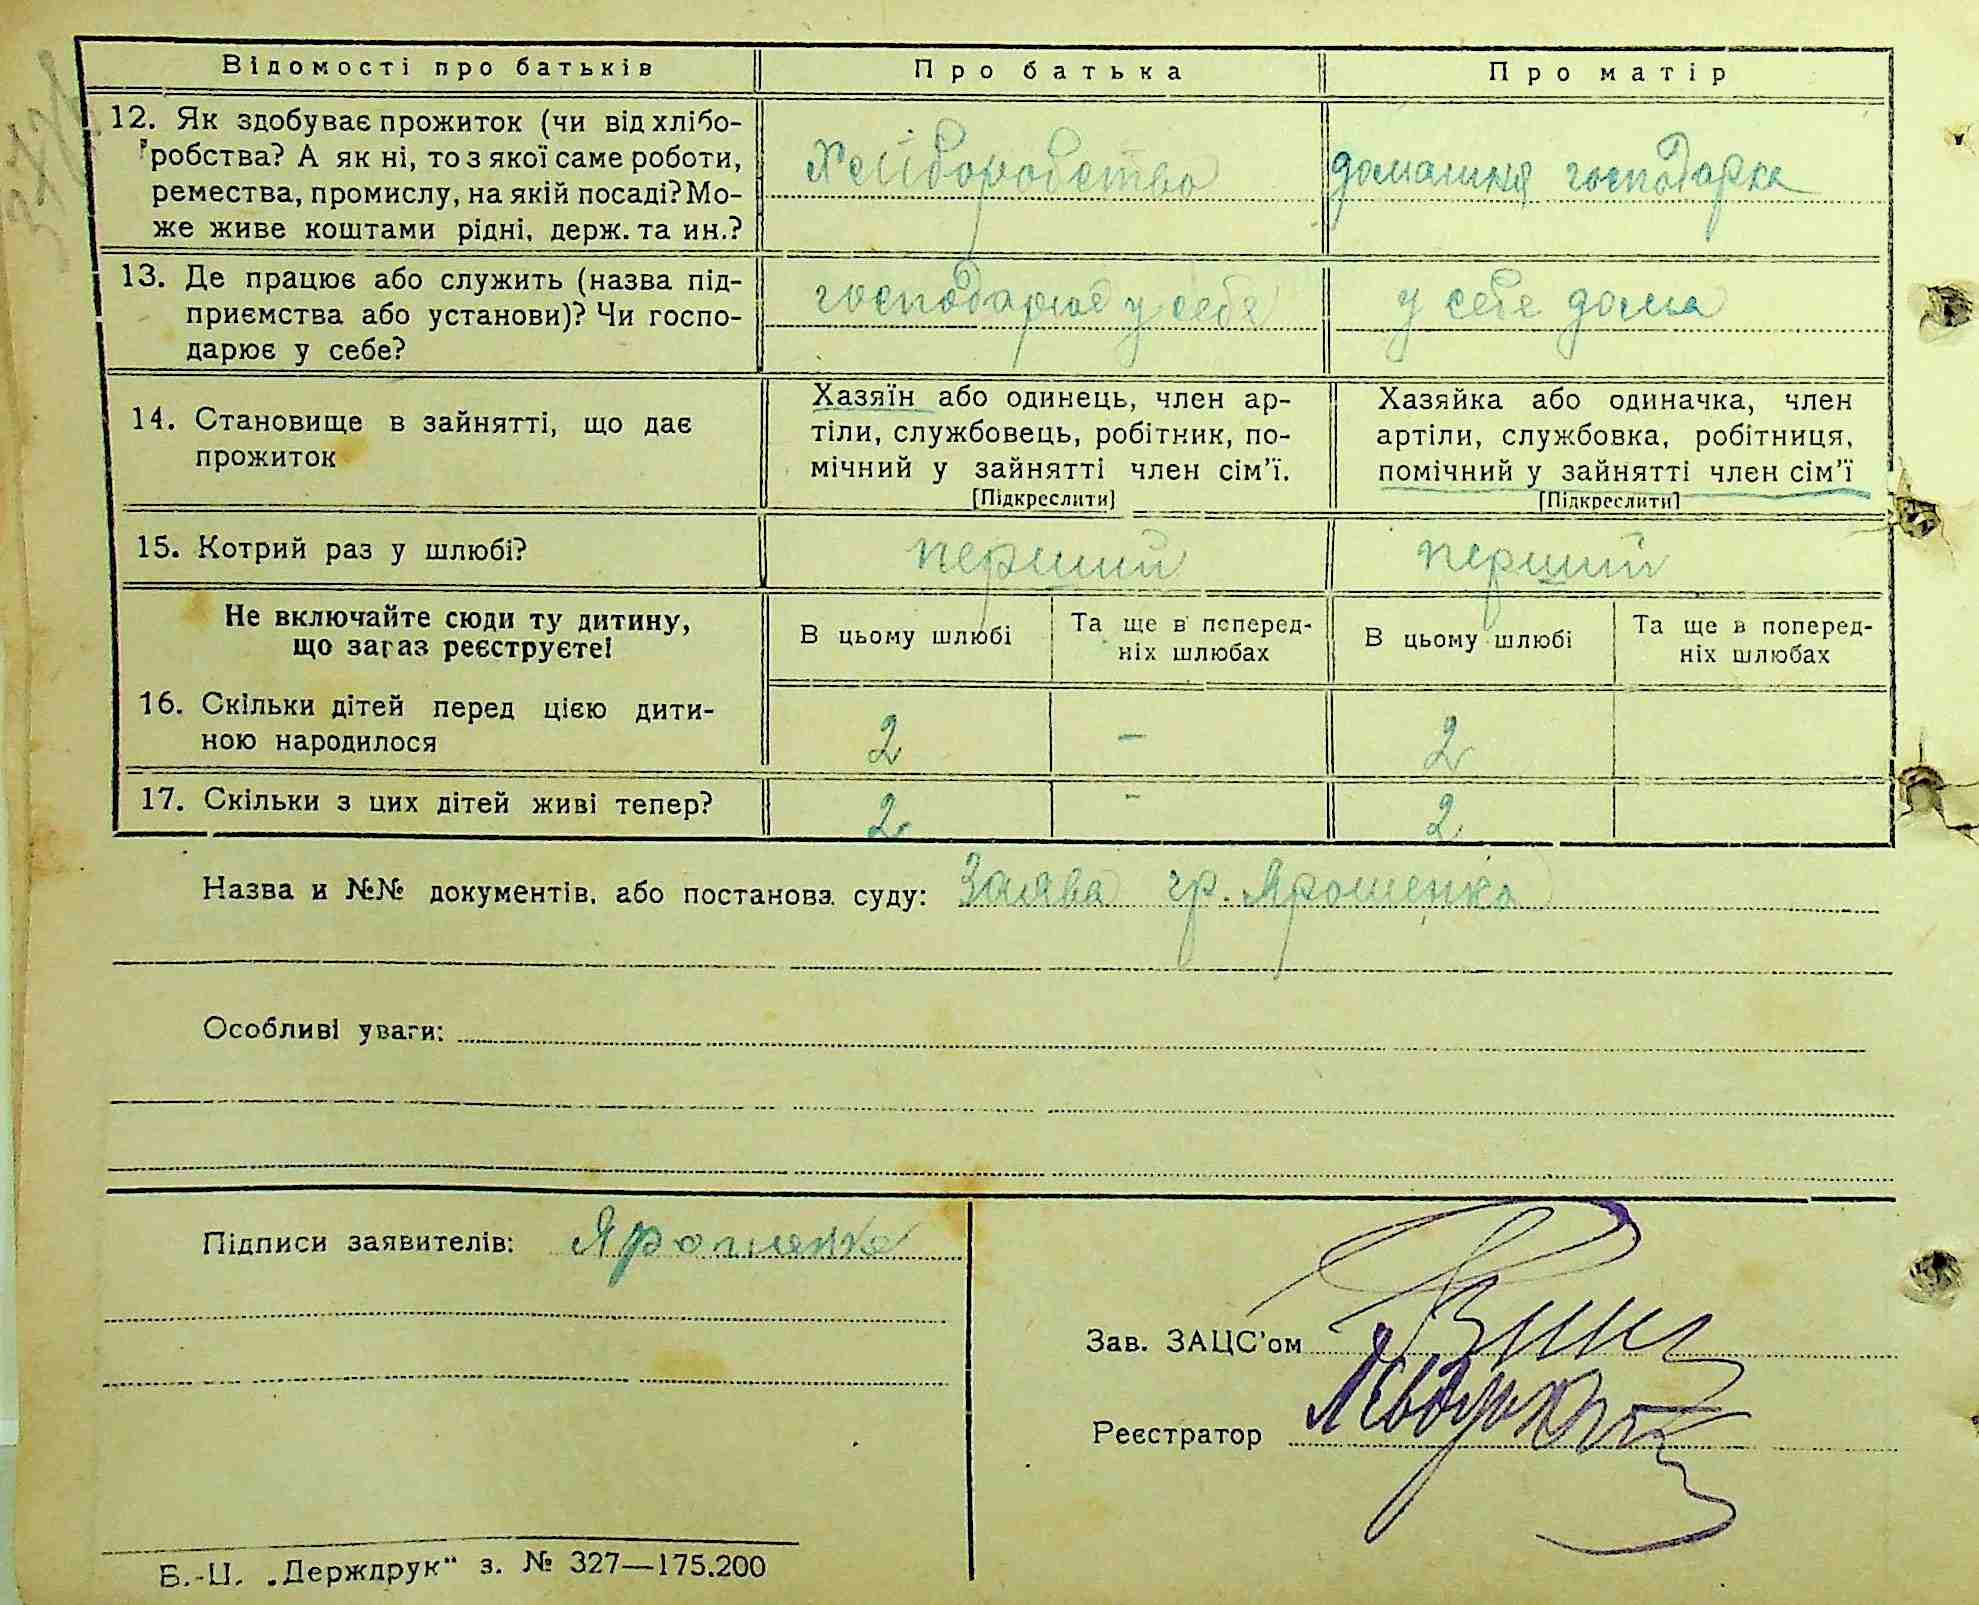 Відомості про батьків Про батька Про матір
12. Як здобуває прожиток (чи від хлібо-
робства? А як ні, то з якої саме роботи,
ремества, промислу, на якій посаді? Мо-
же живе коштами рідні, держ. та ин.?
Хліборобство домашня господарка
13. Де працює або служить (назва під-
приємства або установи)? Чи госпо-
дарює у себе?
господарює у себе у себе дома
14. Становище в зайнятті, що дає
прожиток
Хазяїн або одинець, член ар-
тіли, службовець, робітник, по-
мічний у зайнятті член сім'ї.
[Підкреслити]
Хазяйка або одиначка, член
артіли, службовка, робітниця,
помічний у зайнятті член сім'ї
[Підкреслити]
15. Котрий раз у шлюбі? перший перший
Не включайте сюди ту дитину,
що зараз реєструєте!
В цьому шлюбі
Та ще в поперед-
ніх шлюбах
В цьому шлюбі
Та ще в поперед-
ніх шлюбах
16. Скільки дітей перед цією дити-
ною народилося
2 - 2
17. Скільки з цих дітей живі тепер? 2 - 2
Назва и №№ документів, або постанова суду: Заява гр. Ярошенка
Особливі уваги:
Підписи заявителів: Ярошенко
Зав. ЗАЦС'ом
Реєстратор
Б.-Ц. „Держдрук" з. № 327—175.200